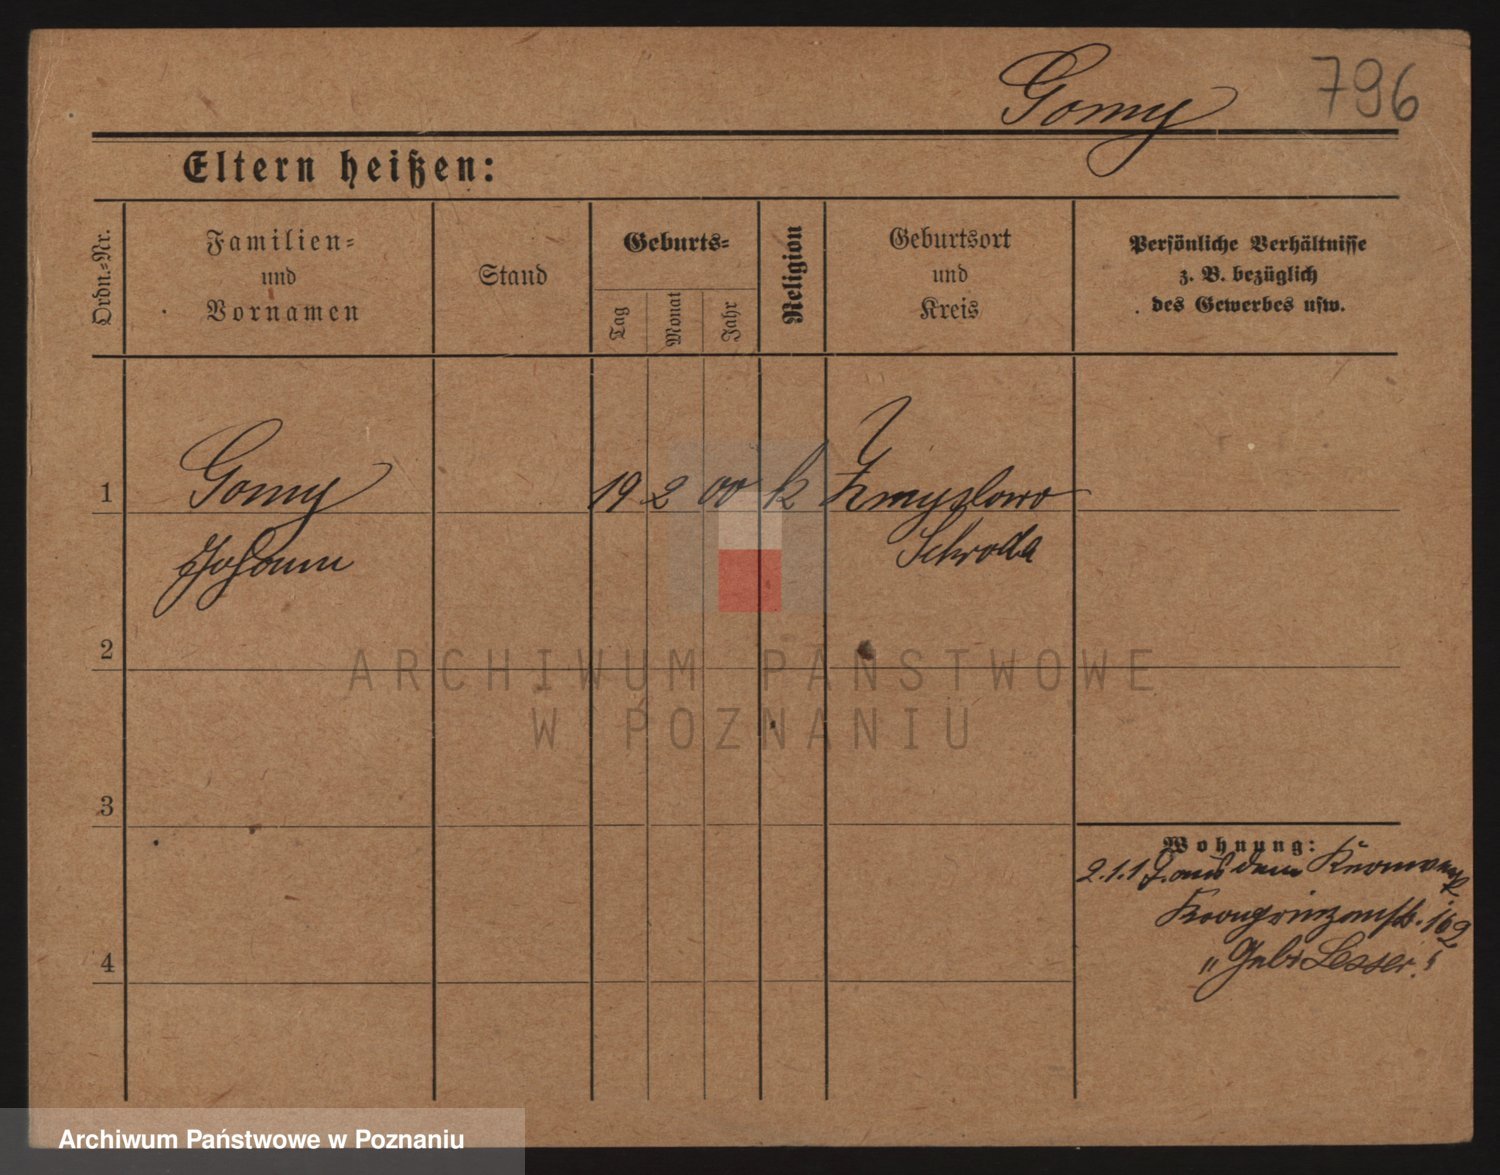 Gomy 796
Eltern heißen:
Ordn.-Nr.
Familien-
und
Vornamen
Stand
Geburts-
Tag
Monat
Jahr
Religion
Geburtsort
und
Kreis
Persönliche Verhältnisse
z. B. bezüglich
des Gewerbes usw.
1 Gomy 19 2 00 k Zmyslowo
Johann Schroda
2
ARCHIWUM PAŃSTWOWE
W POZNANIU
3
Wohnung:
2.1.1 aus dem
162
" Lesser.
4
Archiwum Państwowe w Poznaniu